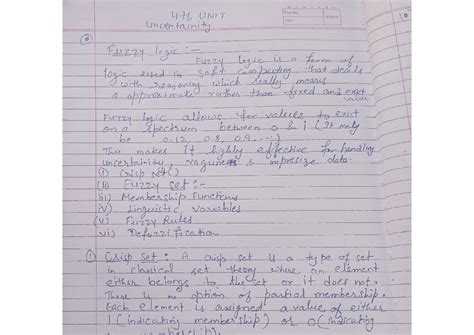 4th UNIT
Uncertainity
Fuzzy logic :-
Fuzzy logic is a form of
logic used in soft computing that deals
with reasoning which really means
a approximate rather than fixed and exact
value
Fuzzy logic allows for values to exist
on a spectrum between 0 & 1 (It may
be 0.12 0.8 0.9 ---)
This makes it highly effective for handling
uncertainity, vagueness & impresize data.
i) Crisp set()
ii) Fuzzy set :-
iii) Membership functions
iv) Linguistic variables
v) Fuzzy Rules
vi) Defuzzification
① Crisp set : A crisp set is a type of set
in classical set theory where an element
either belongs to the set or it does not.
There is no option of partial membership.
Each element is assigned a value of either
1 (indicating membership) or 0 (indicating